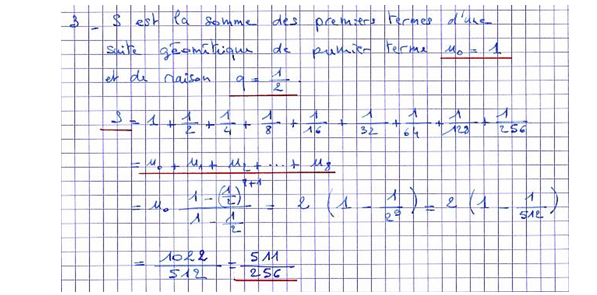 3 - S est la somme des premiers termes d'une
suite géométrique de premier terme u₀ = 1
et de raison q = 1/2.
S = 1 + 1/2 + 1/4 + 1/8 + 1/16 + 1/32 + 1/64 + 1/128 + 1/256
= u₀ + u₁ + u₂ + ... + u₈
= u₀ (1 - (1/2)⁸⁺¹)/(1 - 1/2) = 2 (1 - 1/2⁹) = 2 (1 - 1/512)
= 1022/512 = 511/256